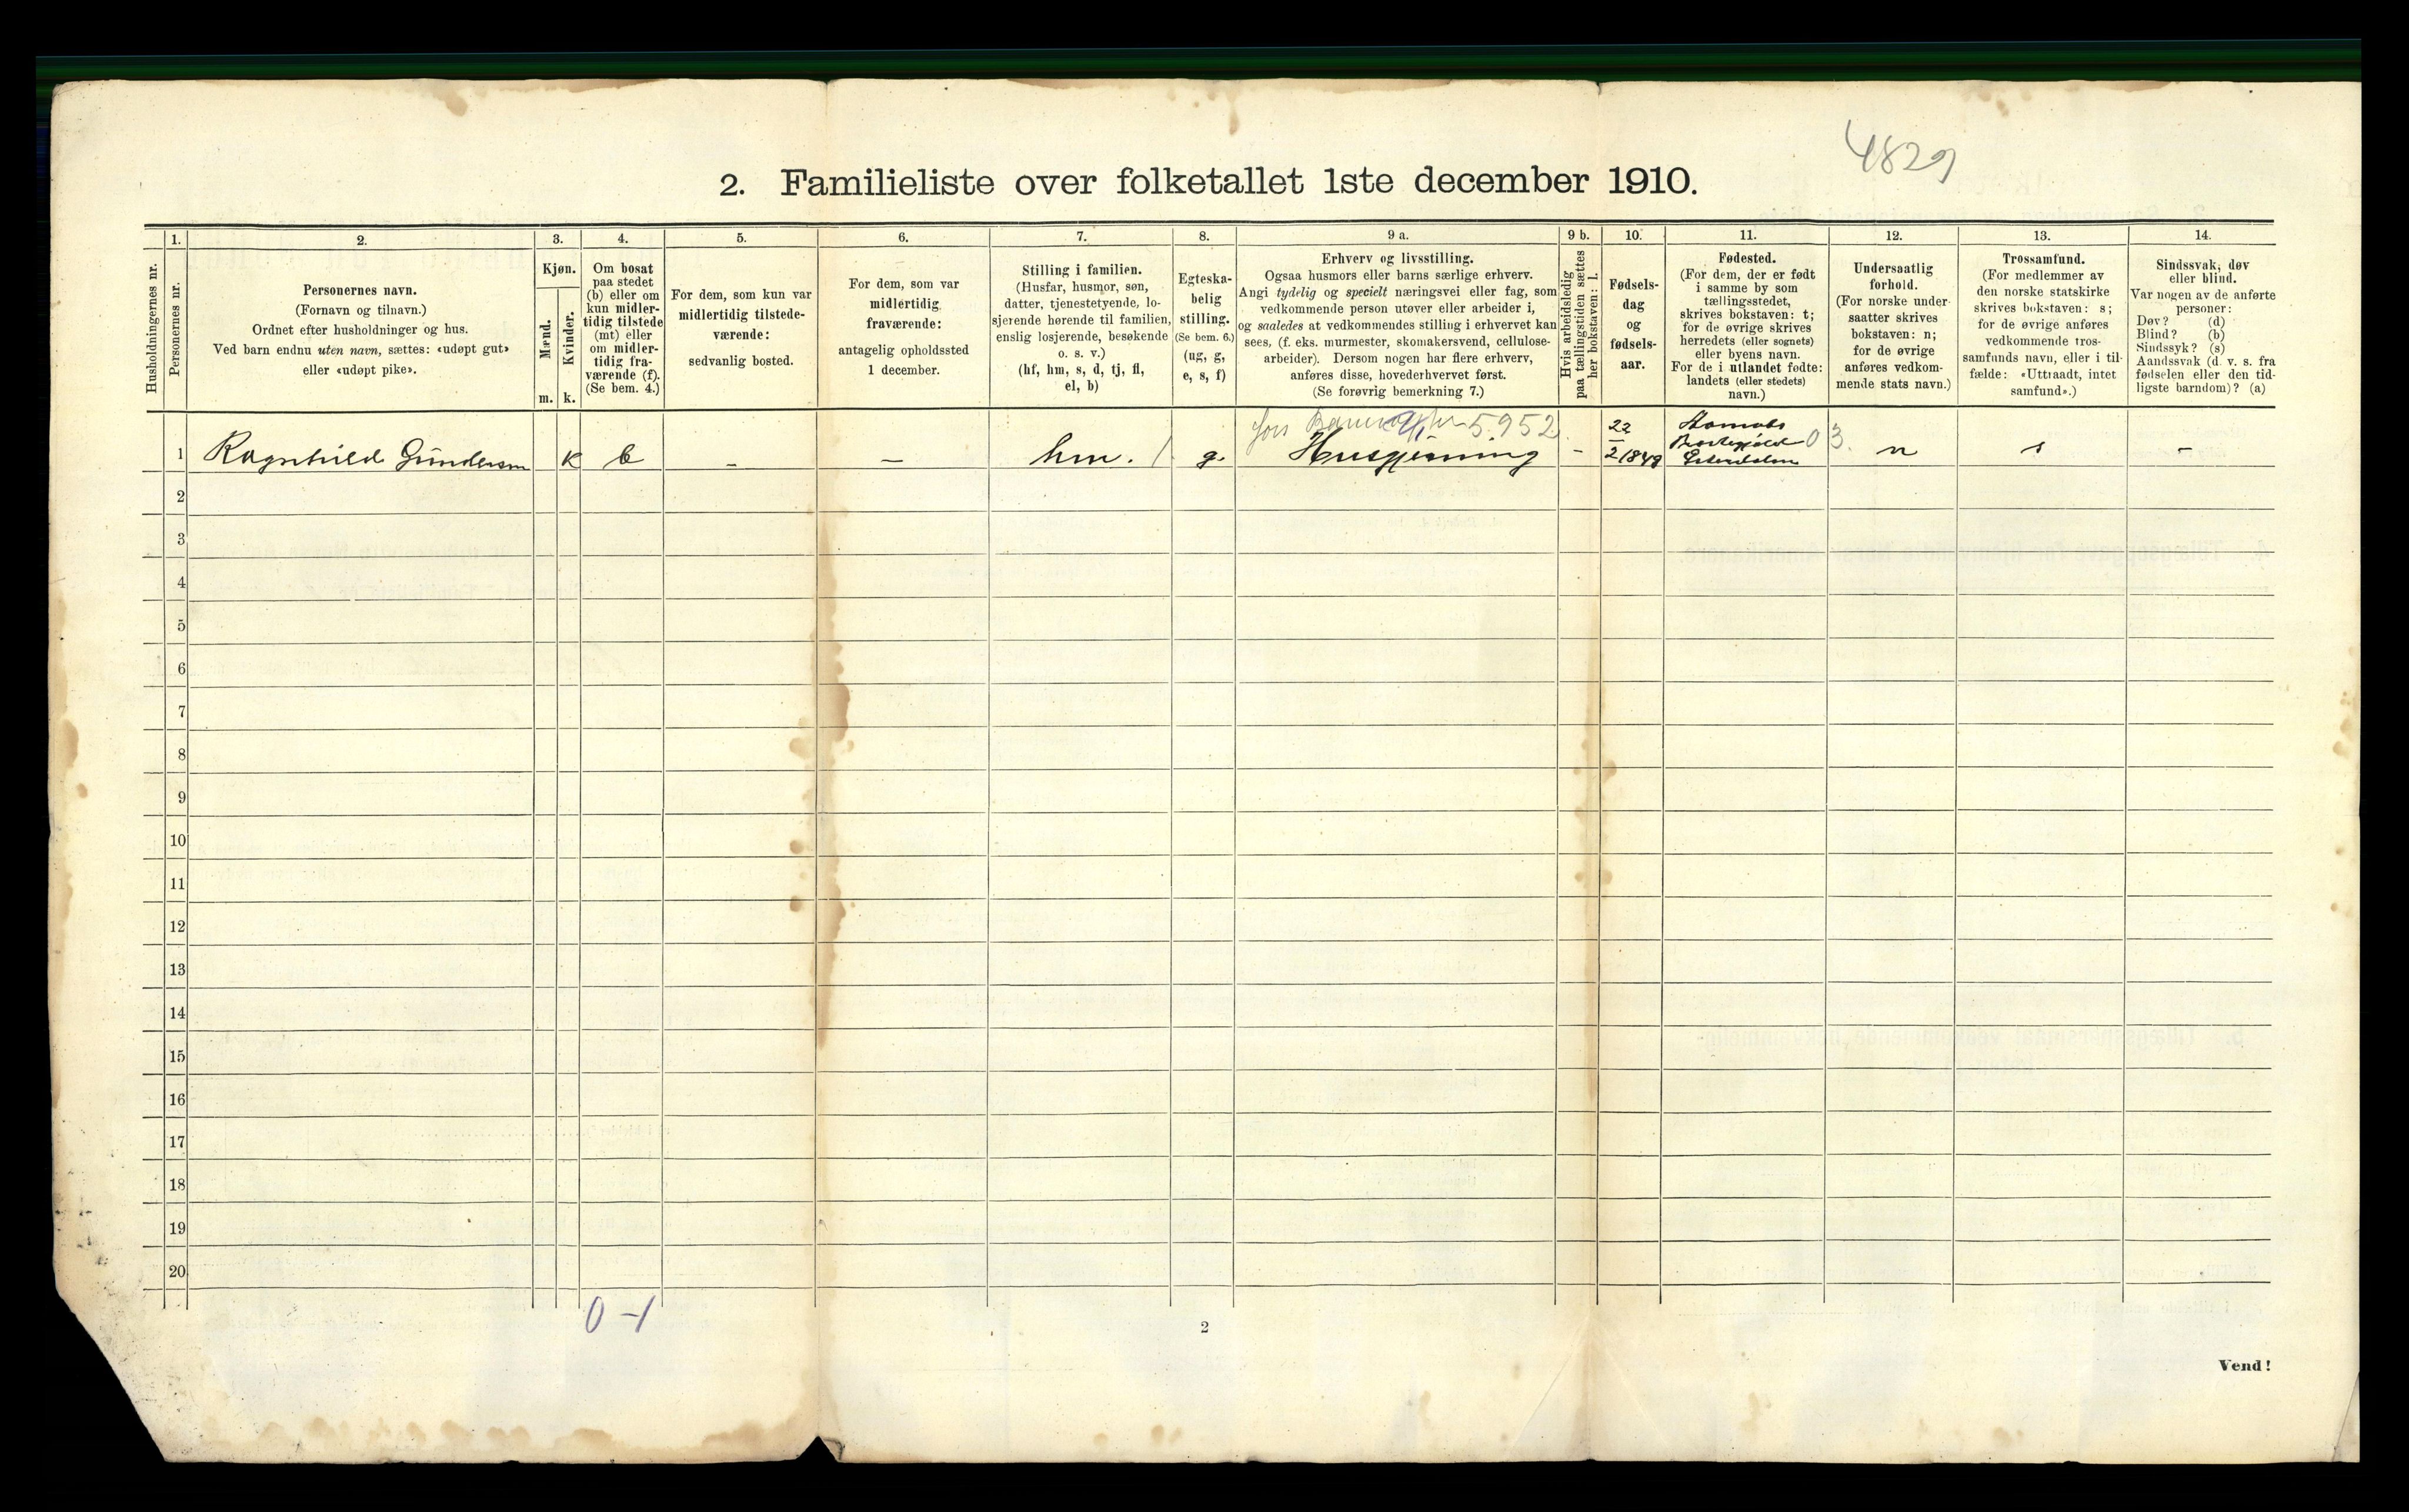 4829
2. Familieliste over folketallet 1ste december 1910.
Husholdningernes nr.
1.
Personernes nr.
2.
Personernes navn.
(Fornavn og tilnavn.)
Ordnet efter husholdninger og hus.
Ved barn endnu uten navn, sættes: «udøpt gut»
eller «udøpt pike».
3.
Kjøn.
Mænd.
Kvinder.
m. k.
4.
Om bosat
paa stedet
(b) eller om
kun midler-
tidig tilstede
(mt) eller
om midler-
tidig fra-
værende (f).
(Se bem. 4.)
5.
For dem, som kun var
midlertidig tilstede-
værende:
sedvanlig bosted.
6.
For dem, som var
midlertidig
fraværende:
antagelig opholdssted
1 december.
7.
Stilling i familien.
(Husfar, husmor, søn,
datter, tjenestetyende, lo-
sjerende hørende til familien,
enslig losjerende, besøkende
o. s. v.)
(hf, hm, s, d, tj, fl,
el, b)
8.
Egteska-
belig
stilling.
(Se bem. 6.)
(ug, g,
e, s, f)
9 a.
Erhverv og livsstilling.
Ogsaa husmors eller barns særlige erhverv.
Angi tydelig og specielt næringsvei eller fag, som
vedkommende person utøver eller arbeider i,
og saaledes at vedkommendes stilling i erhvervet kan
sees, (f. eks. murmester, skomakersvend, cellulose-
arbeider). Dersom nogen har flere erhverv,
anføres disse, hovederhvervet først.
(Se forøvrig bemerkning 7.)
9 b.
Hvis arbeidsledig
paa tællingstiden sættes
her bokstaven: l.
10.
Fødsels-
dag
og
fødsels-
aar.
11.
Fødested.
(For dem, der er født
i samme by som
tællingsstedet,
skrives bokstaven: t;
for de øvrige skrives
herredets (eller sognets)
eller byens navn.
For de i utlandet fødte:
landets (eller stedets)
navn.)
12.
Undersaatlig
forhold.
(For norske under-
saatter skrives
bokstaven: n;
for de øvrige
anføres vedkom-
mende stats navn.)
13.
Trossamfund.
(For medlemmer av
den norske statskirke
skrives bokstaven: s;
for de øvrige anføres
vedkommende tros-
samfunds navn, eller i til-
fælde: «Uttraadt, intet
samfund».)
14.
Sindssvak, døv
eller blind.
Var nogen av de anførte
personer:
Døv? (d)
Blind? (b)
Sindssyk? (s)
Aandssvak (d. v. s. fra
fødselen eller den tid-
ligste barndom)? (a)
5.952.
1 Ragnhild Gundersen k b - - hm. / g. Husgjerning - 22/2 1849 03. n s -
2
3
4
5
6
7
8
9
10
11
12
13
14
15
16
17
18
19
20
0-1
2
Vend!